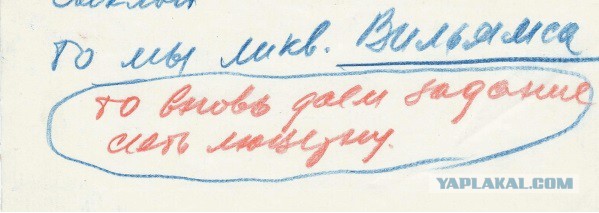 то мы ликв. Вильямса
то вновь даем задание
сеять люцерну.
YAPLAKAL.COM